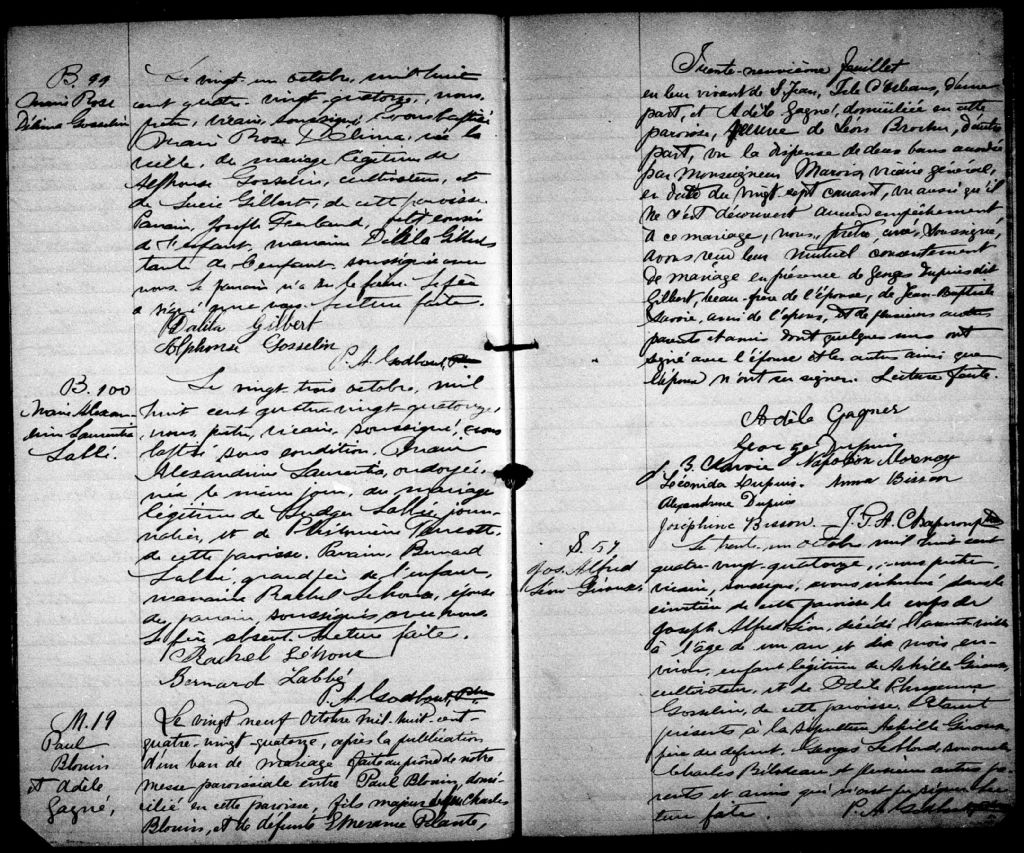 B. 99
Marie Rose
Délima Gosselin
Le vingt-un octobre, mil huit
cent quatre-vingt-quatorze, nous,
prêtre, vicaire, soussigné avons baptisé
Marie Rose Délima, née la
veille, du mariage légitime de
Alphonse Gosselin, cultivateur, et
de Lucie Gilbert, de cette paroisse.
Parrain, Joseph Ferland, cousin
de l'enfant, marraine Dalila Gilbert
tante de l'enfant soussignée avec
nous. Le parrain n'a su le faire. Le père
a signé avec nous. Lecture faite.
Dalila Gilbert
Alphonse Gosselin
P. A. Godbout, Ptre
B. 100
Marie Alexan-
drine Laurentia
Labbé.
Le vingt-trois octobre, mil
huit cent quatre-vingt-quatorze,
nous, prêtre, vicaire, soussigné, avons
baptisé sous condition Marie
Alexandrine Laurentia, ondoyée,
née le même jour, du mariage
légitime de Labbé, jour-
nalier, et de Philomène
de cette paroisse. Parrain, Bernard
Labbé, grand-père de l'enfant,
marraine Rachel Lehoux, épouse
du parrain soussignés avec nous.
Le père absent. Lecture faite.
Rachel Léhoux
Bernard Labbé
P. A. Godbout, Ptre
M. 19
Paul
Blouin
et Adèle
Gagné,
Le vingt neuf Octobre mil-huit-cent-
quatre-vingt-quatorze, après la publication
d'un ban de mariage faite au prône de notre
messe paroissiale entre Paul Blouin, domi-
cilié en cette paroisse, fils majeur de feu Charles
Blouin, et de défunte Emérance Pelante,
Trente-neuvième feuillet
en leur vivant de St Jean, Isle d'Orléans, d'une
part, et Adèle Gagné, domiciliée en cette
paroisse, veuve de Léon Brochu, d'autre
part, vu la dispense de deux bans accordée
par Monseigneur Marois, vicaire général,
en date du vingt sept courant, vu aussi qu'il
ne s'est découvert aucun empêchement
à ce mariage, nous, prêtre, curé, soussigné,
avons reçu leur mutuel consentement
de mariage en présence de Georges Dupuis dit
Gilbert, beau-frère de l'épouse, de Jean-Baptiste
Savoie, ami de l'époux, et de plusieurs autres
parents et amis dont quelques uns ont
signé avec l'épouse et les autres ainsi que
l'époux n'ont su signer. Lecture faite.
Adèle Gagner
George Dupuis
Napoléon
Léonida Dupuis. Anna Bisson
Alexandrine Dupuis
Joséphine Bisson. J. P. A.
S. 57
Jos. Alfred
Léon Giroux.
Le trente-un octobre mil huit cent
quatre-vingt-quatorze, nous prêtre,
vicaire, soussigné, avons inhumé dans le
cimetière de cette paroisse le corps de
Joseph Alfred Léon, décédé l'avant-veille
à l'âge de un an et dix mois en-
viron, enfant légitime de Achille Giroux,
cultivateur, et de Odile
Gosselin, de cette paroisse. Etaient
présents à la sépulture Achille Giroux
père du défunt, Georges Leblond, son oncle
Charles Bilodeau et plusieurs autres pa-
rents et amis qui n'ont pu signer. Lec-
ture faite. P. A. Godbout, Ptre